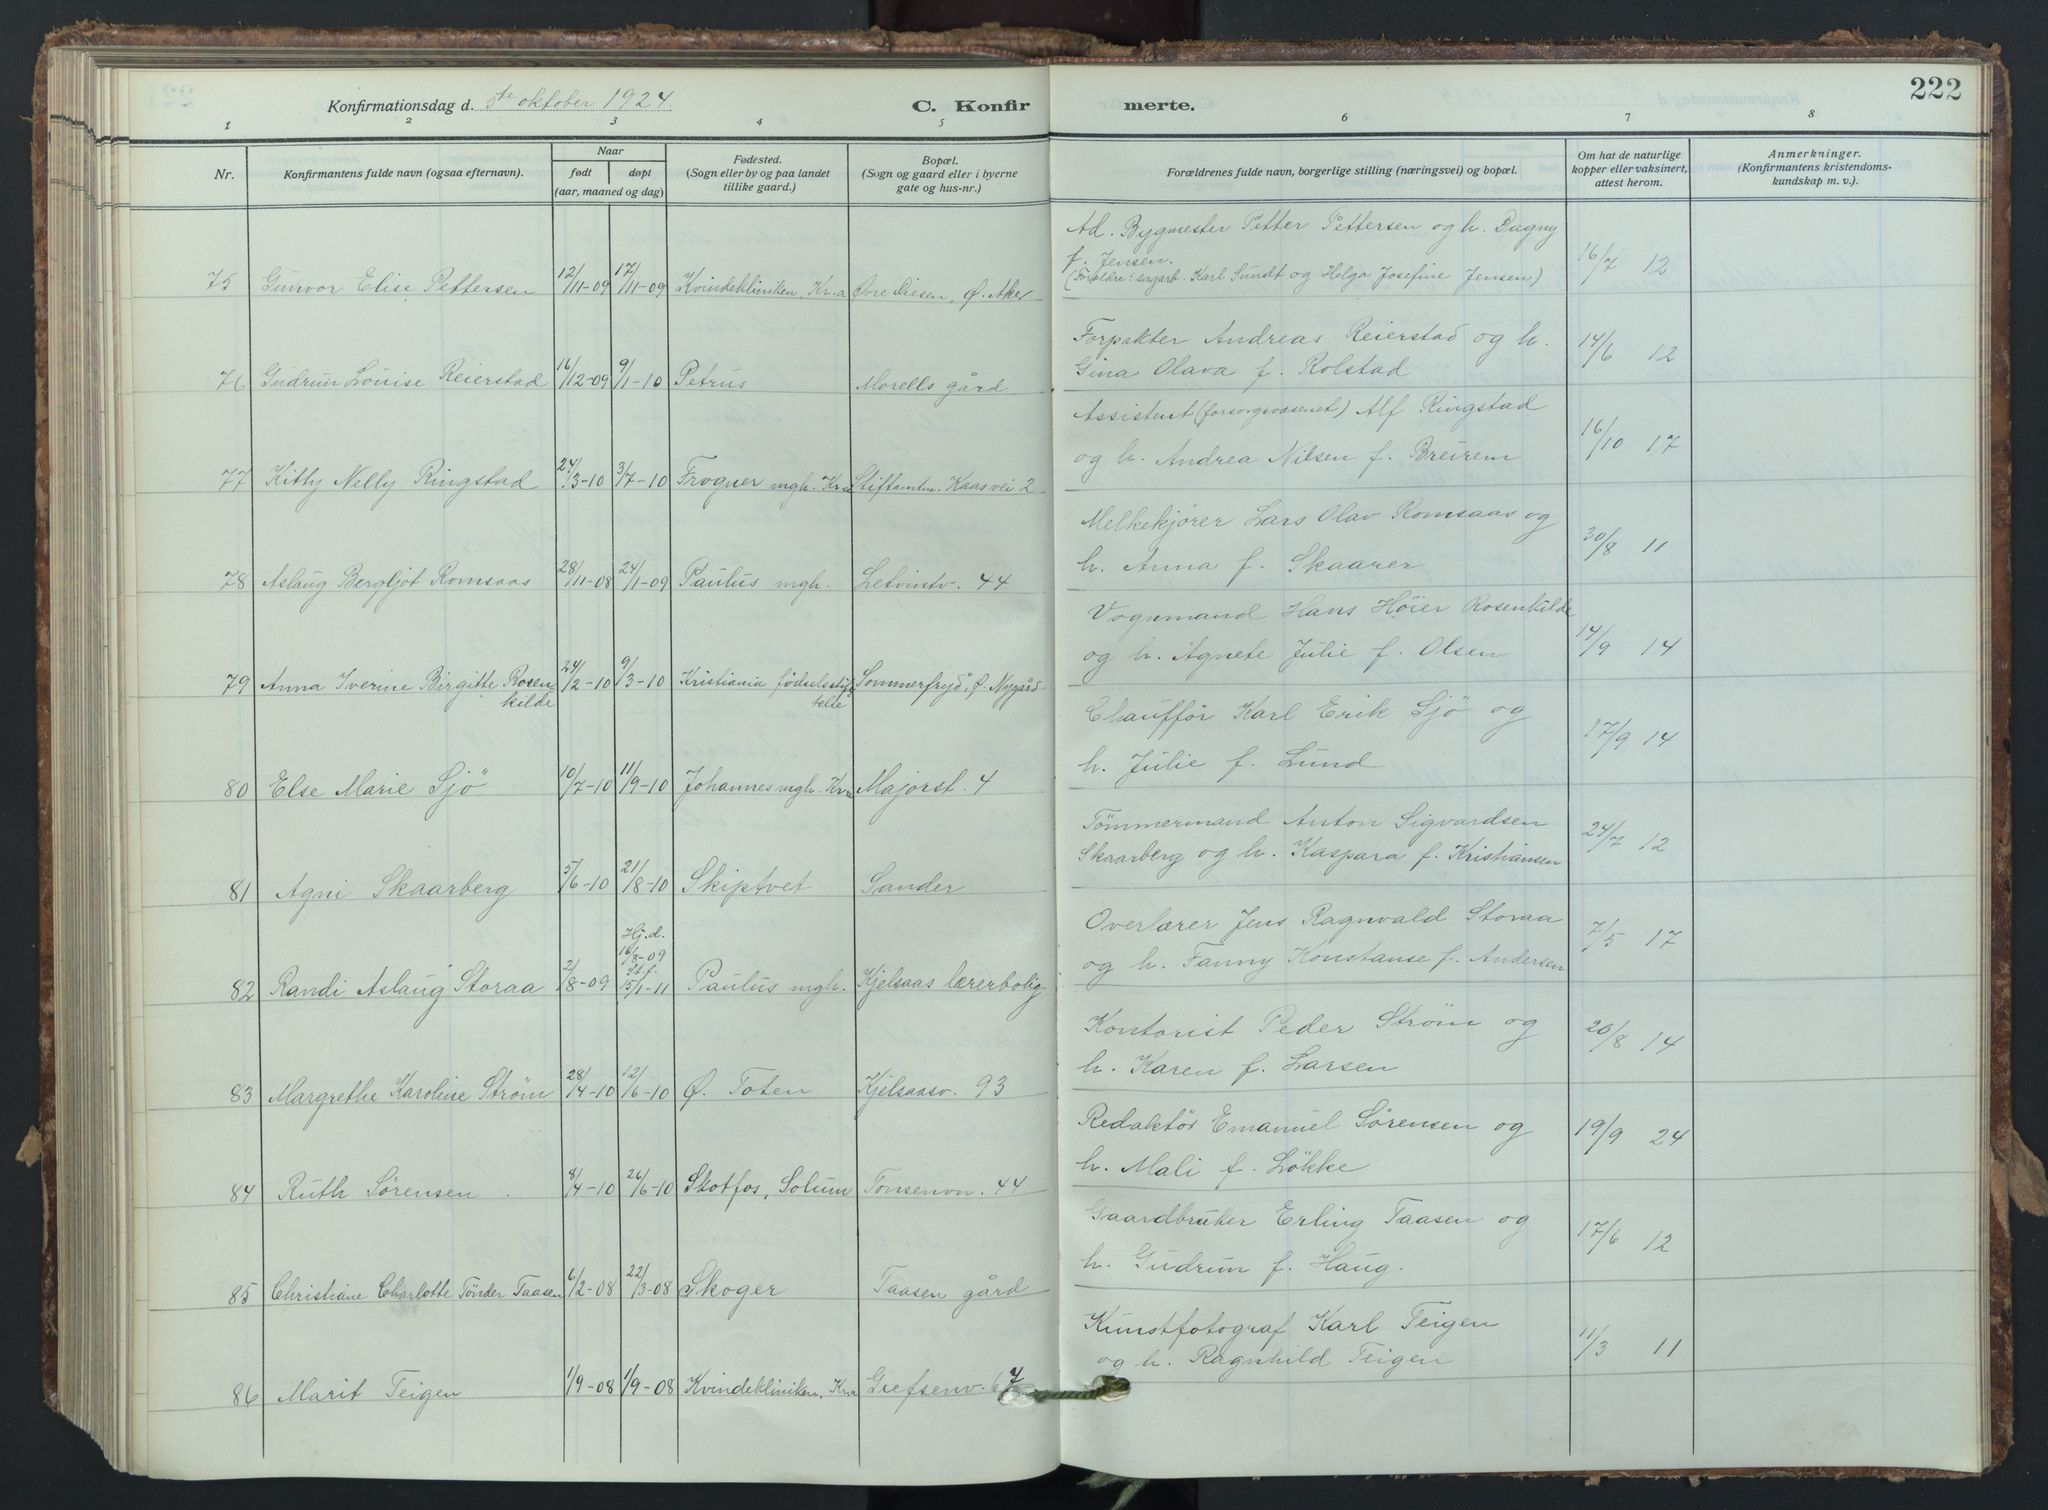 222
Konfirmationsdag d. 5te oktober 1924.
C. Konfirmerte.
1 2 3 4 5 6 7 8
Nr.
Konfirmantens fulde navn (ogsaa efternavn).
Naar
født døpt
(aar, maaned og dag)
Fødested.
(Sogn eller by og paa landet
tillike gaard.)
Bopæl.
(Sogn og gaard eller i byerne
gate og hus-nr.)
Forældrenes fulde navn, borgerlige stilling (næringsvei) og bopæl.
Om hat de naturlige
kopper eller vaksinert,
attest herom.
Anmerkninger.
(Konfirmantens kristendoms-
kundskap m. v.).
Ad. Bygmester Petter Pettersen og h. Dagny
f. Jensen.
(Forældre: sagarb. Karl Sundt og Helga Josefine Jensen)
75 Gunvor Elise Pettersen 12/11-09 17/11-09 Kvindekliniken, Kr.a Øvre Disen, Ø. Aker 16/7 12
Forpakter Andreas Reierstad og h.
Gina Olava f. Rolstad
76 Gudrun Louise Reierstad 16/12-09 9/1-10 Petrus Morells gård 14/6 12
Assistent (forsorgsvæsenet) Alf Ringstad
og h. Andrea Nilsen f. Breirem
77 Kitty Nelly Ringstad 24/3-10 3/7-10 Frogner mgh. Kra Stiftamtm. Kaasvei 2 16/10 17
Melkekjører Lars Olav Romsaas og
h. Anna f. Skaarer
78 Aslaug Bergljot Romsaas 28/11-08 24/1-09 Paulus mgh. Lefvintv. 44 30/8 11
Vognmand Hans Høier Rosenkilde
og h. Agnete Julie f. Olsen
79 Anna Iverine Birgitte Rosen-
kilde 24/2-10 9/3-10 Kristiania fødselsstif-
telse "Sommerfryd", Ø. Nygård 14/9 14
Chauffør Karl Erik Sjö og
h. Julie f. Lund
80 Else Marie Sjö 10/7-10 11/9-10 Johannes mgh. Kra Majorst. 4 17/9 14
Tømmermand Anton Sigvardsen
Skaarberg og h. Kaspara f. Kristiansen
81 Agni Skaarberg 5/6-10 21/8-10 Skiptvet Sander 24/7 12
Overlærer Jens Ragnvald Storaa
og h. Fanny Konstanse f. Andersen
82 Randi Aslaug Storaa 2/8-09 Hj.d. 16/8-09 St.f. 15/1-11 Paulus mgh. Kjelsaas lærerbolig 7/5 17
Kontorist Peder Strøm og
h. Karen f. Larsen
83 Margrethe Karoline Strøm 28/4-10 12/6-10 Ø. Toten Kjelsaasv. 93 20/8 14
Redaktør Emanuel Sørensen og
h. Mali f. Løkke
84 Ruth Sørensen 8/4-10 26/6-10 Skotfos, Solum Tonsenvn. 44 19/9 24
Gaardbruker Erling Taasen og
h. Gudrun f. Haug.
85 Christiane Charlotte Tønder Taasen 6/2-08 22/3-08 Skoger Taasen gård 17/6 12
Kunstfotograf Karl Teigen
og h. Ragnhild Teigen
86 Marit Teigen 1/9-08 1/9-08 Kvindekliniken, Kra Grefsenv. 67 11/3 11